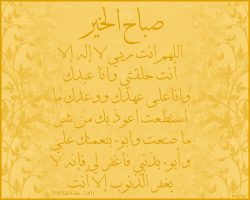 صباح الخير
اللهم انت ربي لا إله إلا
أنت خلقتني وانا عبدك
وانا على عهدك ووعدك ما
استطعت اعوذ بك من شر
ما صنعت وابوء بنعمتك علي
وابوء بذنبي فاغفر لي فإنه لا
يغفر الذنوب إلا أنت